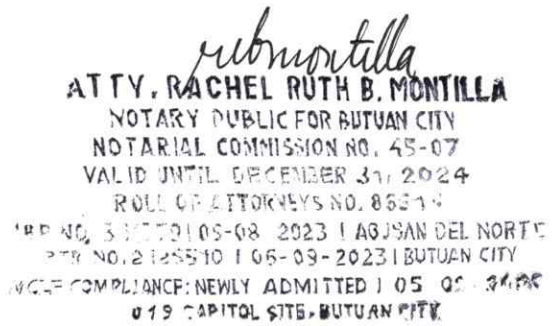 rrbmontilla
ATTY. RACHEL RUTH B. MONTILLA
NOTARY PUBLIC FOR BUTUAN CITY
NOTARIAL COMMISSION NO. 45-07
VALID UNTIL DECEMBER 31, 2024
ROLL OF ATTORNEYS NO.
IBP NO. | 05-08 2023 | AGUSAN DEL NORTE
PTR NO. | 06-09-2023 | BUTUAN CITY
MCLE COMPLIANCE: NEWLY ADMITTED | 05
019 CAPITOL SITE, BUTUAN CITY